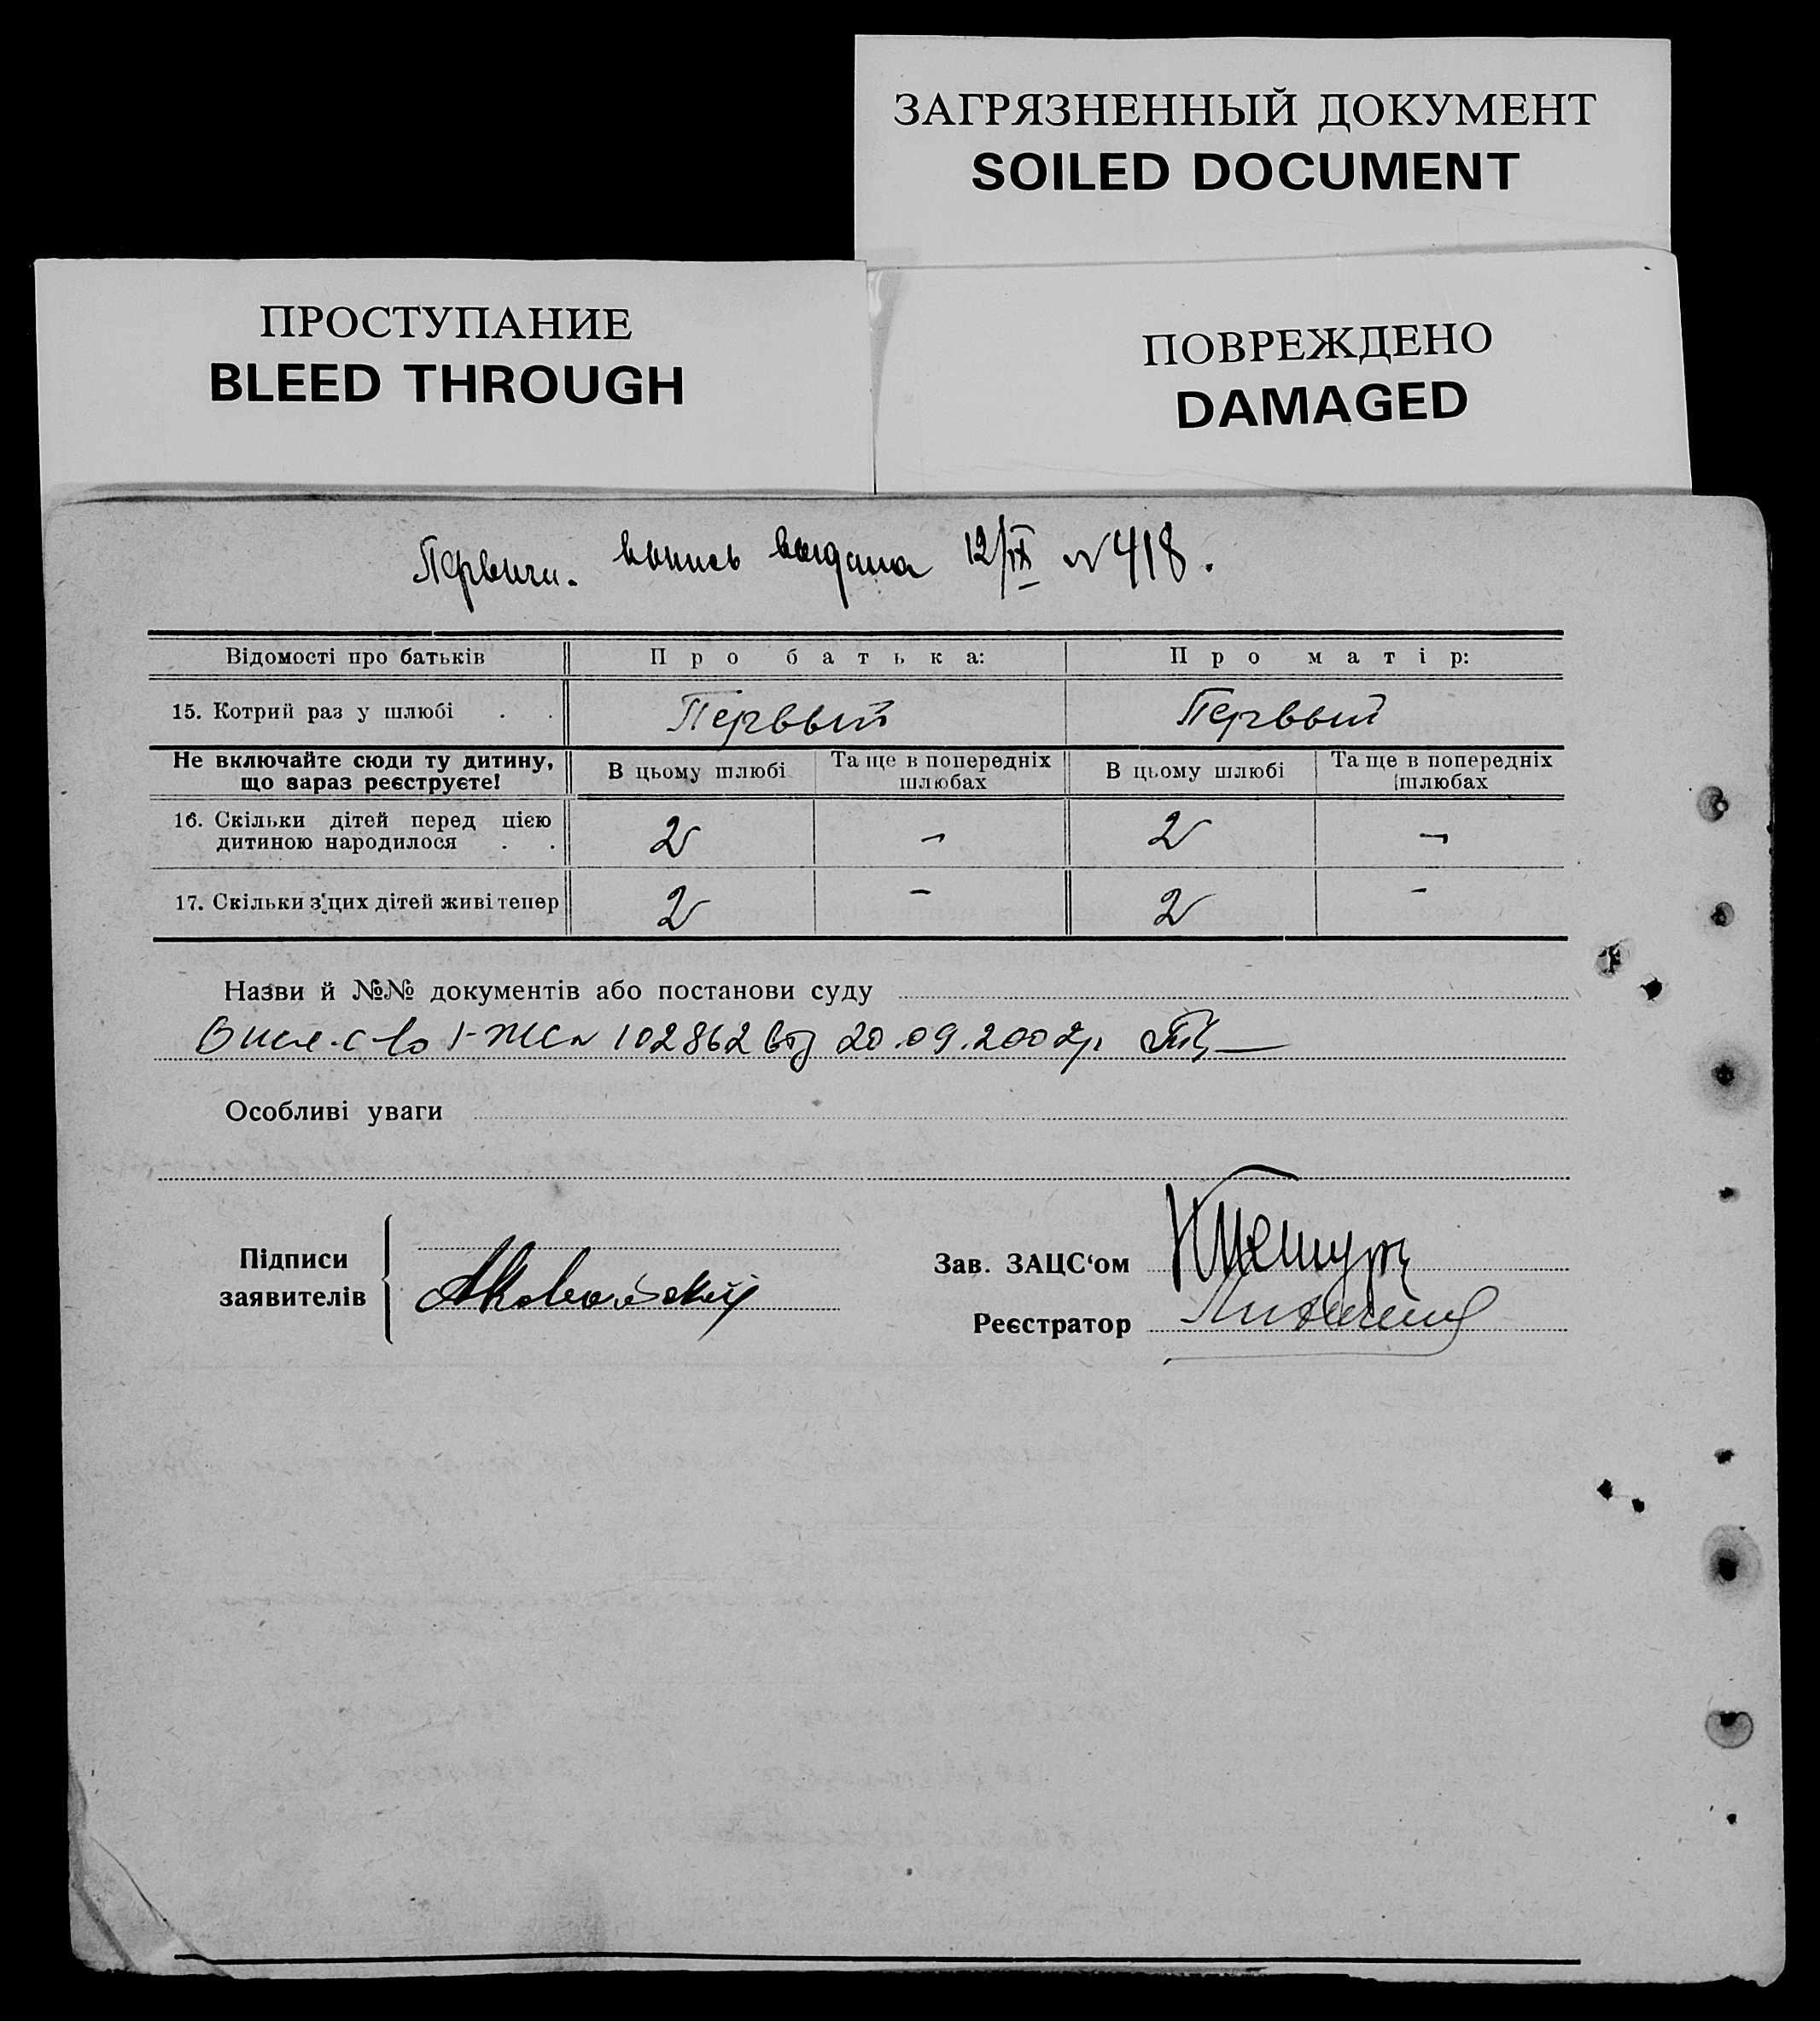 ЗАГРЯЗНЕННЫЙ ДОКУМЕНТ
SOILED DOCUMENT
ПРОСТУПАНИЕ
BLEED THROUGH
ПОВРЕЖДЕНО
DAMAGED
Первичн. выпись выдана 12/IX N 418.
Відомості про батьків Про батька: Про матір:
15. Котрий раз у шлюбі . . Первый Первый
Не включайте сюди ту дитину, що зараз реєструєте! В цьому шлюбі Та ще в попередніх шлюбах В цьому шлюбі Та ще в попередніх шлюбах
16. Скільки дітей перед цією
дитиною народилося . . 2 - 2 -
17. Скільки з цих дітей живі тепер 2 - 2 -
Назви й №№ документів або постанови суду
102862 від 20.09.2002р.
Особливі уваги
Підписи
заявителів
Зав. ЗАЦС‘ом
Реєстратор